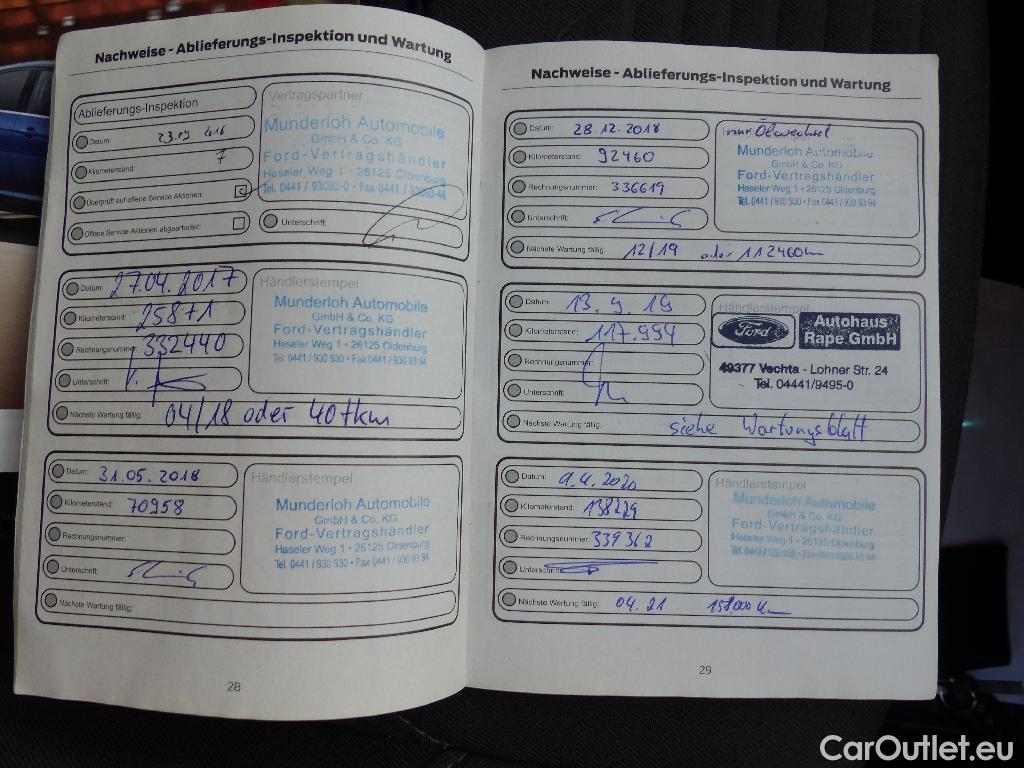 Nachweise - Ablieferungs-Inspektion und Wartung
Ablieferungs-Inspektion
Datum:
Kilometerstand: 7
Überprüft auf offene Service Aktionen:
Offene Service Aktionen abgearbeitet:
Vertragspartner
Munderloh Automobile
GmbH & Co. KG
Ford-Vertragshändler
Haseler Weg 1 • 26125 Oldenburg
Tel. 0441 / 93093-0 • Fax 0441 / 93093-44
Unterschrift:
Datum: 27.04.2017
Kilometerstand: 25871
Rechnungsnummer: 332440
Unterschrift:
Nächste Wartung fällig: 04/18 oder 40tkm
Händlerstempel
Munderloh Automobile
GmbH & Co. KG
Ford-Vertragshändler
Haseler Weg 1 • 26125 Oldenburg
Tel. 0441 / 930 930 • Fax 0441 / 930 93 94
Datum: 31.05.2018
Kilometerstand: 70958
Rechnungsnummer:
Unterschrift:
Nächste Wartung fällig:
Händlerstempel
Munderloh Automobile
GmbH & Co. KG
Ford-Vertragshändler
Haseler Weg 1 • 26125 Oldenburg
Tel. 0441 / 930 930 • Fax 0441 / 930 93 94
28
Nachweise - Ablieferungs-Inspektion und Wartung
Datum: 28.12.2018
Kilometerstand: 92460
Rechnungsnummer: 336619
Unterschrift:
Nächste Wartung fällig: 12/19 oder 112460km
nur Ölwechsel
Munderloh Automobile
GmbH & Co. KG
Ford-Vertragshändler
Haseler Weg 1 • 26125 Oldenburg
Tel. 0441 / 930 930 • Fax 0441 / 930 93 94
Datum: 13.9.19
Kilometerstand: 117.994
Rechnungsnummer:
Unterschrift:
Nächste Wartung fällig: siehe Wartungsblatt
Händlerstempel
Ford
Autohaus
Rape GmbH
49377 Vechta - Lohner Str. 24
Tel. 04441/9495-0
Datum: 9.4.2020
Kilometerstand:
Rechnungsnummer: 339362
Unterschrift:
Nächste Wartung fällig: 04.21 158.000 km
Händlerstempel
Munderloh Automobile
GmbH & Co. KG
Ford-Vertragshändler
Haseler Weg 1 • 26125 Oldenburg
Tel. 0441 / 930 930 • Fax 0441 / 930 93 94
29
CarOutlet.eu